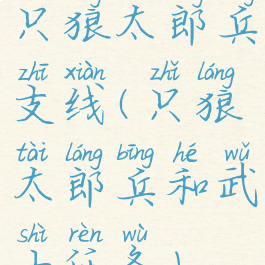 只狼太郎兵
zhī xiàn zhǐ láng
支线(只狼
tài láng bīng hé wǔ
太郎兵和武
shì rèn wù